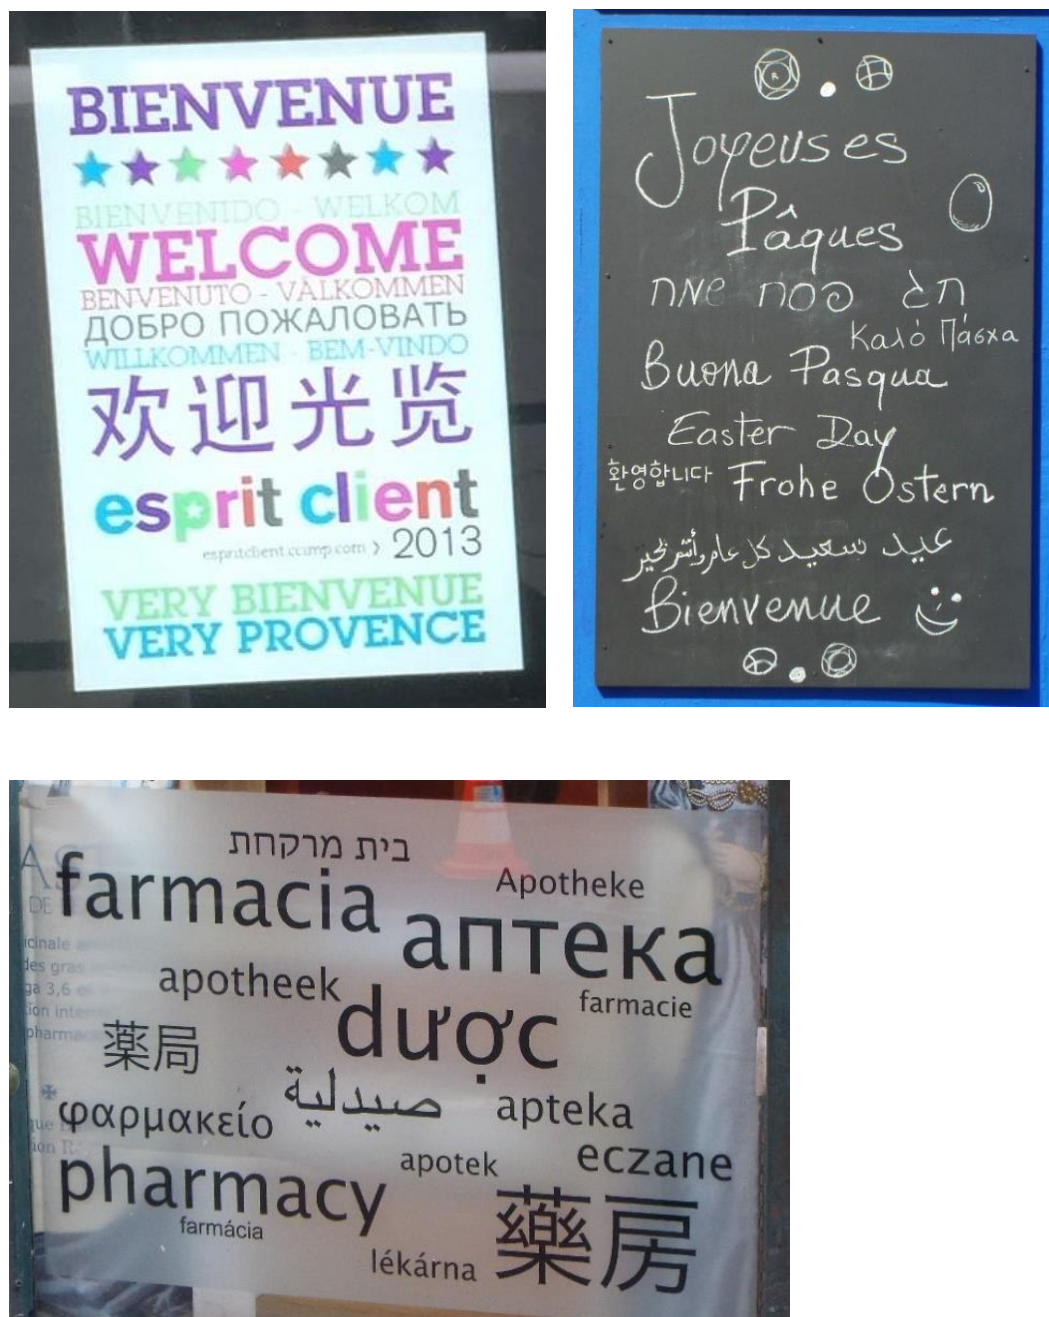 BIENVENUE
BIENVENIDO - WELKOM
WELCOME
BENVENUTO - VÄLKOMMEN
ДОБРО ПОЖАЛОВАТЬ
WILLKOMMEN - BEM-VINDO
欢迎光览
esprit client
espritclient.ccimp.com > 2013
VERY BIENVENUE
VERY PROVENCE
Joyeuses
Pâques
חג פסח שמח
Καλό Πάσχα
Buona Pasqua
Easter Day
환영합니다 Frohe Ostern
عيد سعيد كل عام وأنتم بخير
Bienvenue
בית מרקחת
farmacia
Apotheke
аптека
apotheek
farmacie
dược
薬局
صيدلية
φαρμακείο
apteka
eczane
apotek
pharmacy
farmácia
藥房
lékárna